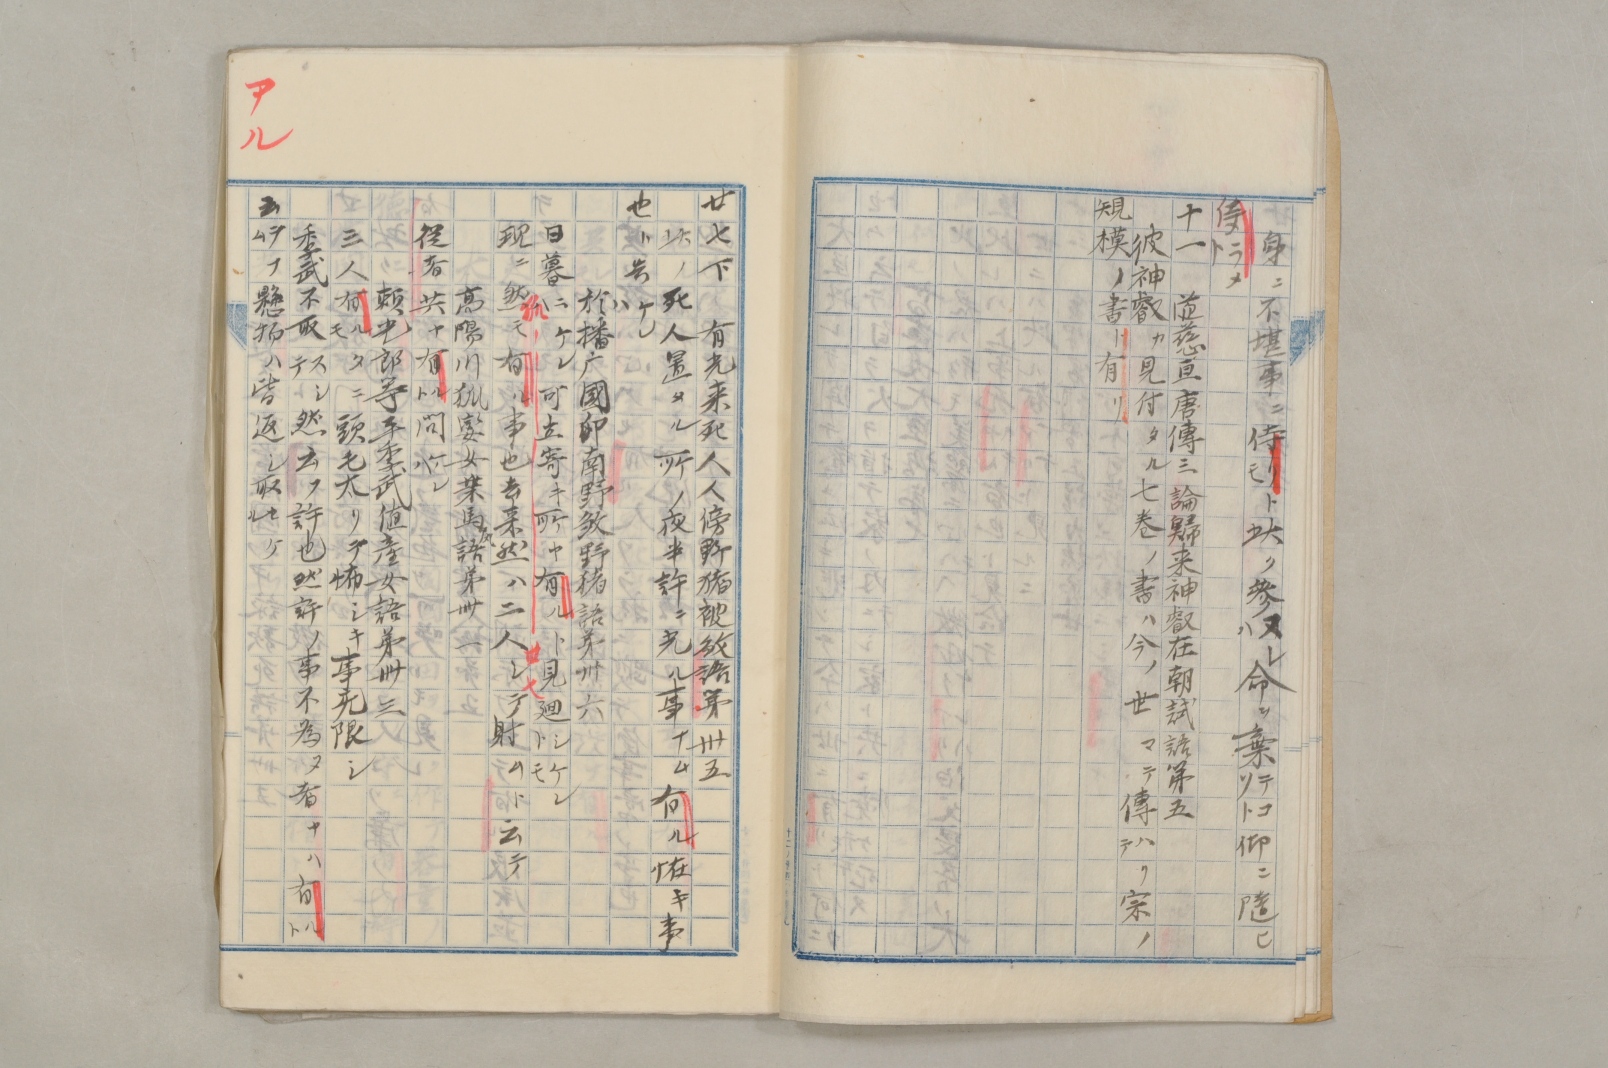 身ニ不堪事ニ侍リトモ 然ク参ハヌレ命ヲ棄テコソト仰ニ隨ヒ
侍ラメト
十一 道慈亘唐傳三論歸来神叡在朝試語第五
彼神叡カ見付タル七巻ノ書ハ今ノ世マテ傳ハリテ宗ノ
規模ノ書ト有リ
アル
廿七下 有光来死人人傍野猪被殺語第卅五
此ノ死人置タル所ノ夜半許ニ光ル事ナム有ル怪キ事
也ト告ケレハ
於播广國印南野殺野猪語第卅六
日暮ニケレ可立寄キ所ヤ有ルト見廻シケレトモ
現ニ然モ有ル事也去来然ハ二人シテ射ムト云テ
高陽川狐變女乗馬尻語第卅一
従者共ヤ有ルト問ケレ
頼光郎等平季武値産女語第卅三
三人有ルモタニ頭毛太リテ怖シキ事无限シ
季武不取スシテ然云フ許也然許ノ事不為ヌ者ヤハ有ルト
云テムラフ懸物ハ皆返シ取セケル